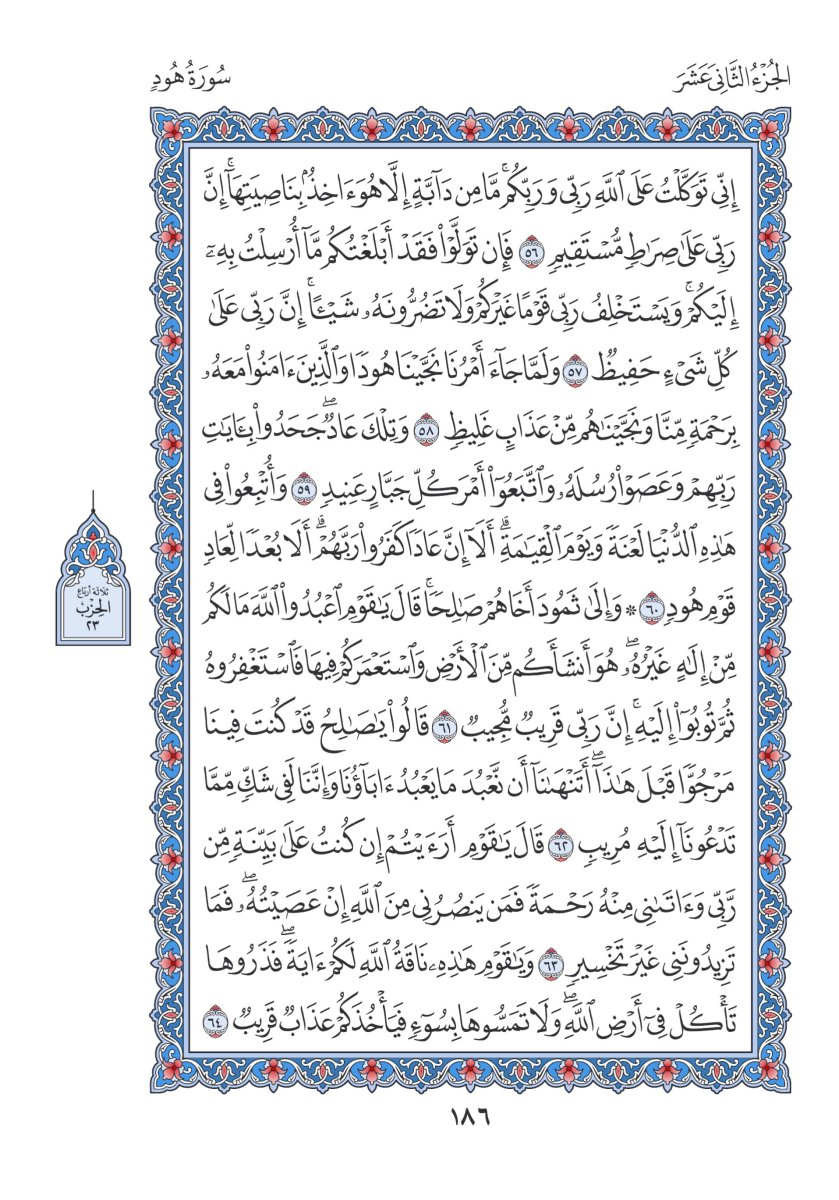 الجُزْءُ الثَّانِيَ عَشَرَ
سُورَةُ هُودٍ
إِنِّي تَوَكَّلْتُ عَلَى ٱللَّهِ رَبِّي وَرَبِّكُمۚ مَّا مِن دَآبَّةٍ إِلَّا هُوَ ءَاخِذُۢ بِنَاصِيَتِهَآۚ إِنَّ
رَبِّي عَلَىٰ صِرَٰطٖ مُّسۡتَقِيمٖ ٥٦ فَإِن تَوَلَّوۡاْ فَقَدۡ أَبۡلَغۡتُكُم مَّآ أُرۡسِلۡتُ بِهِۦٓ
إِلَيۡكُمۡۚ وَيَسۡتَخۡلِفُ رَبِّي قَوۡمًا غَيۡرَكُمۡ وَلَا تَضُرُّونَهُۥ شَيۡـًٔاۚ إِنَّ رَبِّي عَلَىٰ
كُلِّ شَيۡءٍ حَفِيظٞ ٥٧ وَلَمَّا جَآءَ أَمۡرُنَا نَجَّيۡنَا هُودٗا وَٱلَّذِينَ ءَامَنُواْ مَعَهُۥ
بِرَحۡمَةٖ مِّنَّا وَنَجَّيۡنَٰهُم مِّنۡ عَذَابٍ غَلِيظٖ ٥٨ وَتِلۡكَ عَادٞۖ جَحَدُواْ بِـَٔايَٰتِ
رَبِّهِمۡ وَعَصَوۡاْ رُسُلَهُۥ وَٱتَّبَعُوٓاْ أَمۡرَ كُلِّ جَبَّارٍ عَنِيدٖ ٥٩ وَأُتۡبِعُواْ فِي
هَٰذِهِ ٱلدُّنۡيَا لَعۡنَةٗ وَيَوۡمَ ٱلۡقِيَٰمَةِۗ أَلَآ إِنَّ عَادٗا كَفَرُواْ رَبَّهُمۡۗ أَلَا بُعۡدٗا لِّعَادٖ
قَوۡمِ هُودٖ ٦٠ ۞ وَإِلَىٰ ثَمُودَ أَخَاهُمۡ صَٰلِحٗاۚ قَالَ يَٰقَوۡمِ ٱعۡبُدُواْ ٱللَّهَ مَا لَكُم
مِّنۡ إِلَٰهٍ غَيۡرُهُۥۖ هُوَ أَنشَأَكُم مِّنَ ٱلۡأَرۡضِ وَٱسۡتَعۡمَرَكُمۡ فِيهَا فَٱسۡتَغۡفِرُوهُ
ثُمَّ تُوبُوٓاْ إِلَيۡهِۚ إِنَّ رَبِّي قَرِيبٞ مُّجِيبٞ ٦١ قَالُواْ يَٰصَٰلِحُ قَدۡ كُنتَ فِينَا
مَرۡجُوّٗا قَبۡلَ هَٰذَآۖ أَتَنۡهَىٰنَآ أَن نَّعۡبُدَ مَا يَعۡبُدُ ءَابَآؤُنَا وَإِنَّنَا لَفِي شَكّٖ مِّمَّا
تَدۡعُونَآ إِلَيۡهِ مُرِيبٖ ٦٢ قَالَ يَٰقَوۡمِ أَرَءَيۡتُمۡ إِن كُنتُ عَلَىٰ بَيِّنَةٖ مِّن
رَّبِّي وَءَاتَىٰنِي مِنۡهُ رَحۡمَةٗ فَمَن يَنصُرُنِي مِنَ ٱللَّهِ إِنۡ عَصَيۡتُهُۥۖ فَمَا
تَزِيدُونَنِي غَيۡرَ تَخۡسِيرٖ ٦٣ وَيَٰقَوۡمِ هَٰذِهِۦ نَاقَةُ ٱللَّهِ لَكُمۡ ءَايَةٗۖ فَذَرُوهَا
تَأۡكُلۡ فِيٓ أَرۡضِ ٱللَّهِۖ وَلَا تَمَسُّوهَا بِسُوٓءٖ فَيَأۡخُذَكُمۡ عَذَابٞ قَرِيبٞ ٦٤
ثلاثة أرباع
الحِزْبُ
٢٣
١٨٦